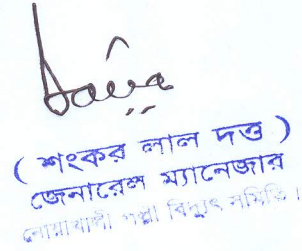 ( শংকর লাল দত্ত )
জেনারেল ম্যানেজার
নোয়াখালী পল্লী বিদ্যুৎ সমিতি।